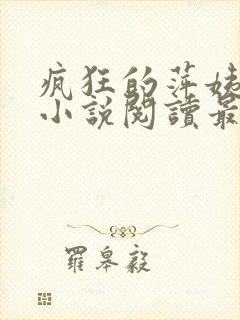 疯狂的萍姊
小說閱讀最
羅皋毅